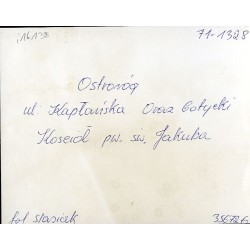 71-1328
Ostroróg
ul. Kapłańska Oraz Gotycki
Kościół pw. św. Jakuba
fot stasiek